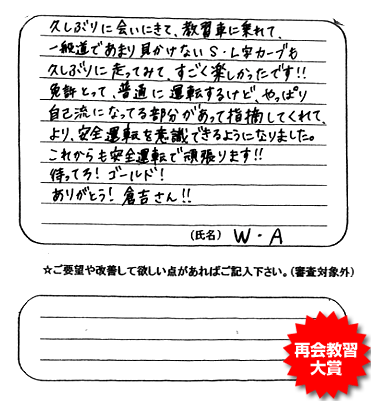 久しぶりに会いにきて、教習車に乗れて、
一般道であまり見かけないS・L字カーブも
久しぶりに走ってみて、すごく楽しかったです!!
免許とって、普通に運転するけど、やっぱり
自己流になってる部分があって指摘してくれて、
より、安全運転を意識できるようになりました。
これからも安全運転で頑張ります!!
待ってろ!ゴールド!
ありがとう!倉吉さん!!
(氏名) W・A
☆ご要望や改善して欲しい点があればご記入下さい。(審査対象外)
再会教習
大賞